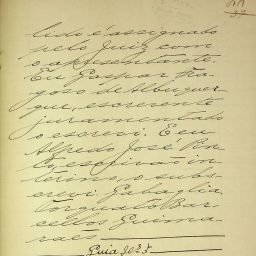 lido é assignado
pelo Juiz com
o apresentante.
Eu Gaspar Fra
goso de Albuquer
que, escrevente
juramentado
o escrevi. E eu
Alfredo José Pin
to, escrivão in
terino, o subs
crevi. Gabaglia
Torquato Bar
cellos Guima
rães
Guia 2025